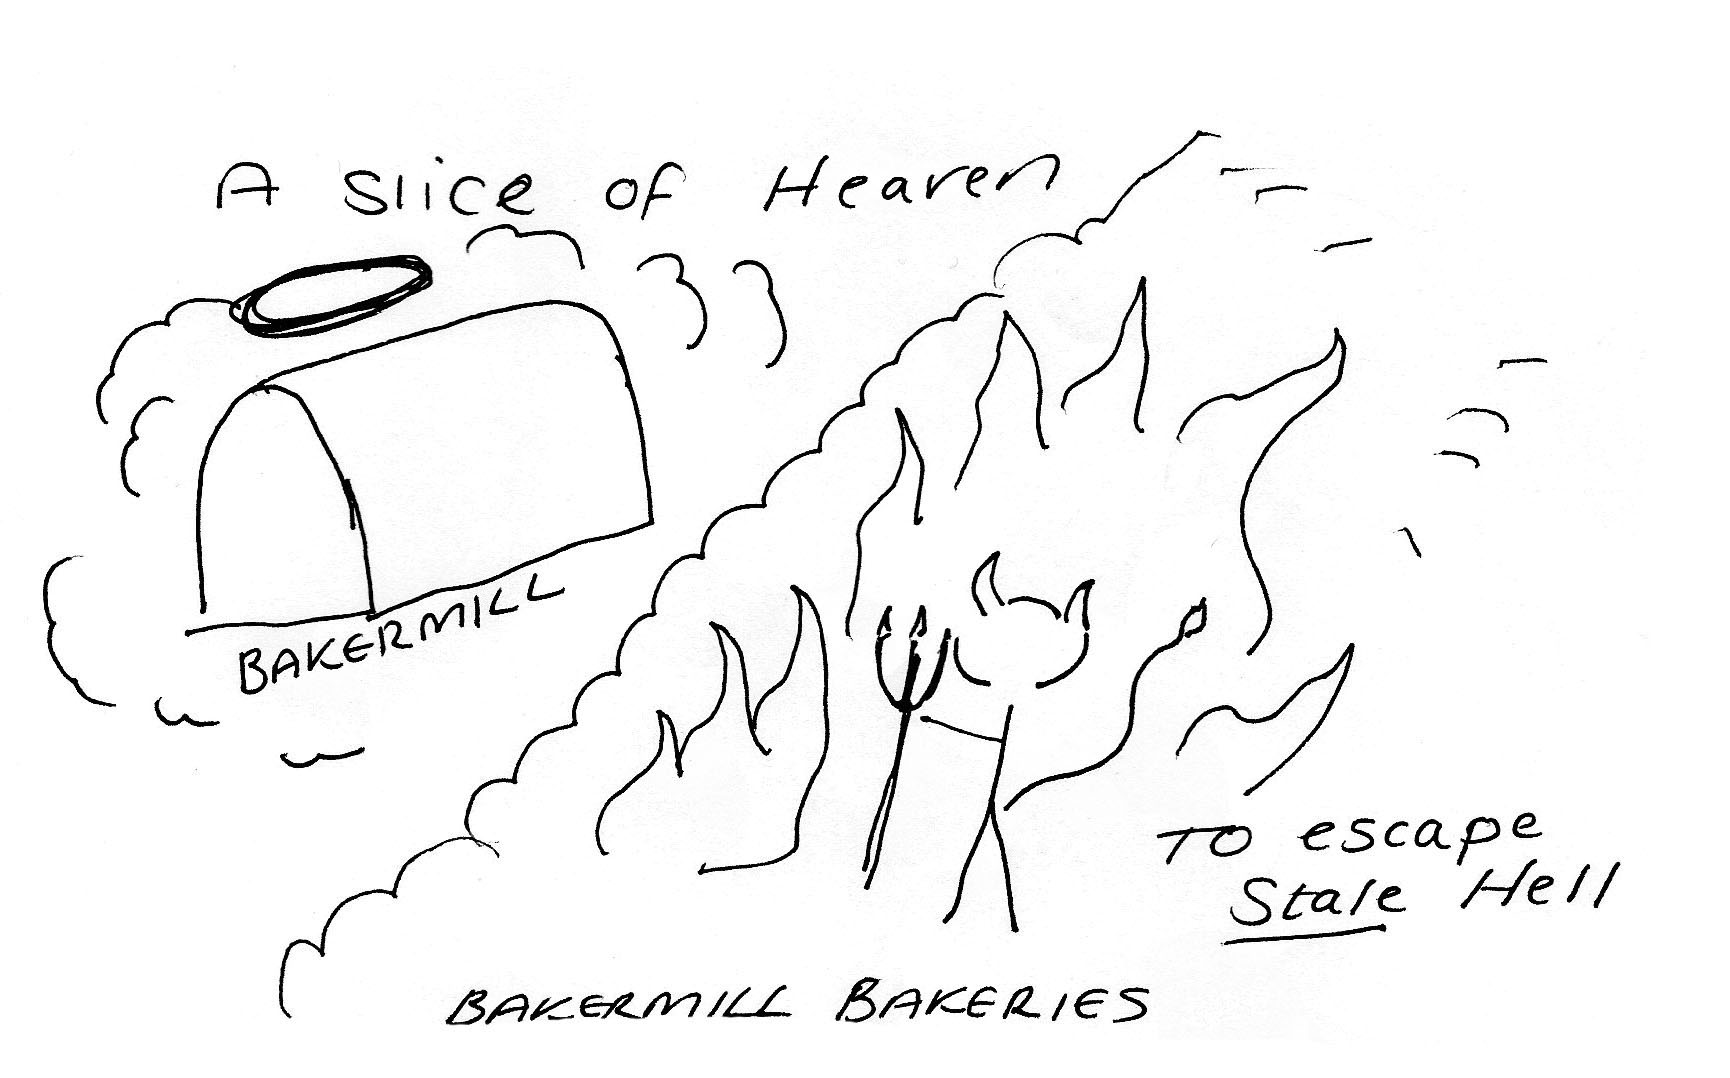 A Slice of Heaven
BAKERMILL
TO escape
Stale Hell
BAKERMILL BAKERIES